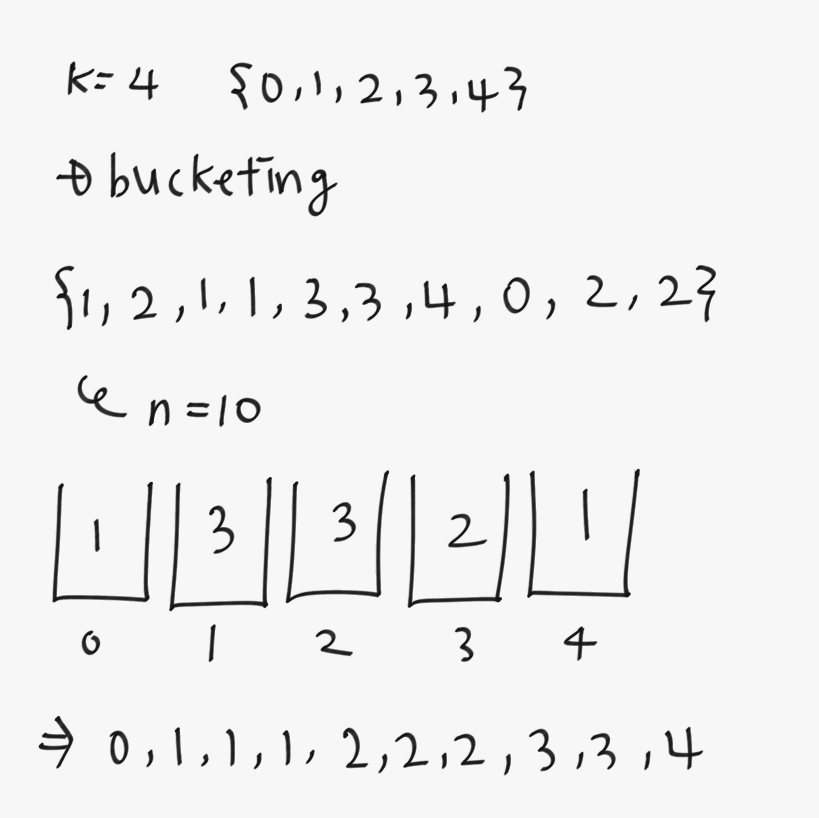 k=4 {0,1,2,3,4}
→ bucketing
{1,2,1,1,3,3,4,0,2,2}
n=10
1 3 3 2 1
0 1 2 3 4
⇒ 0,1,1,1,2,2,2,3,3,4